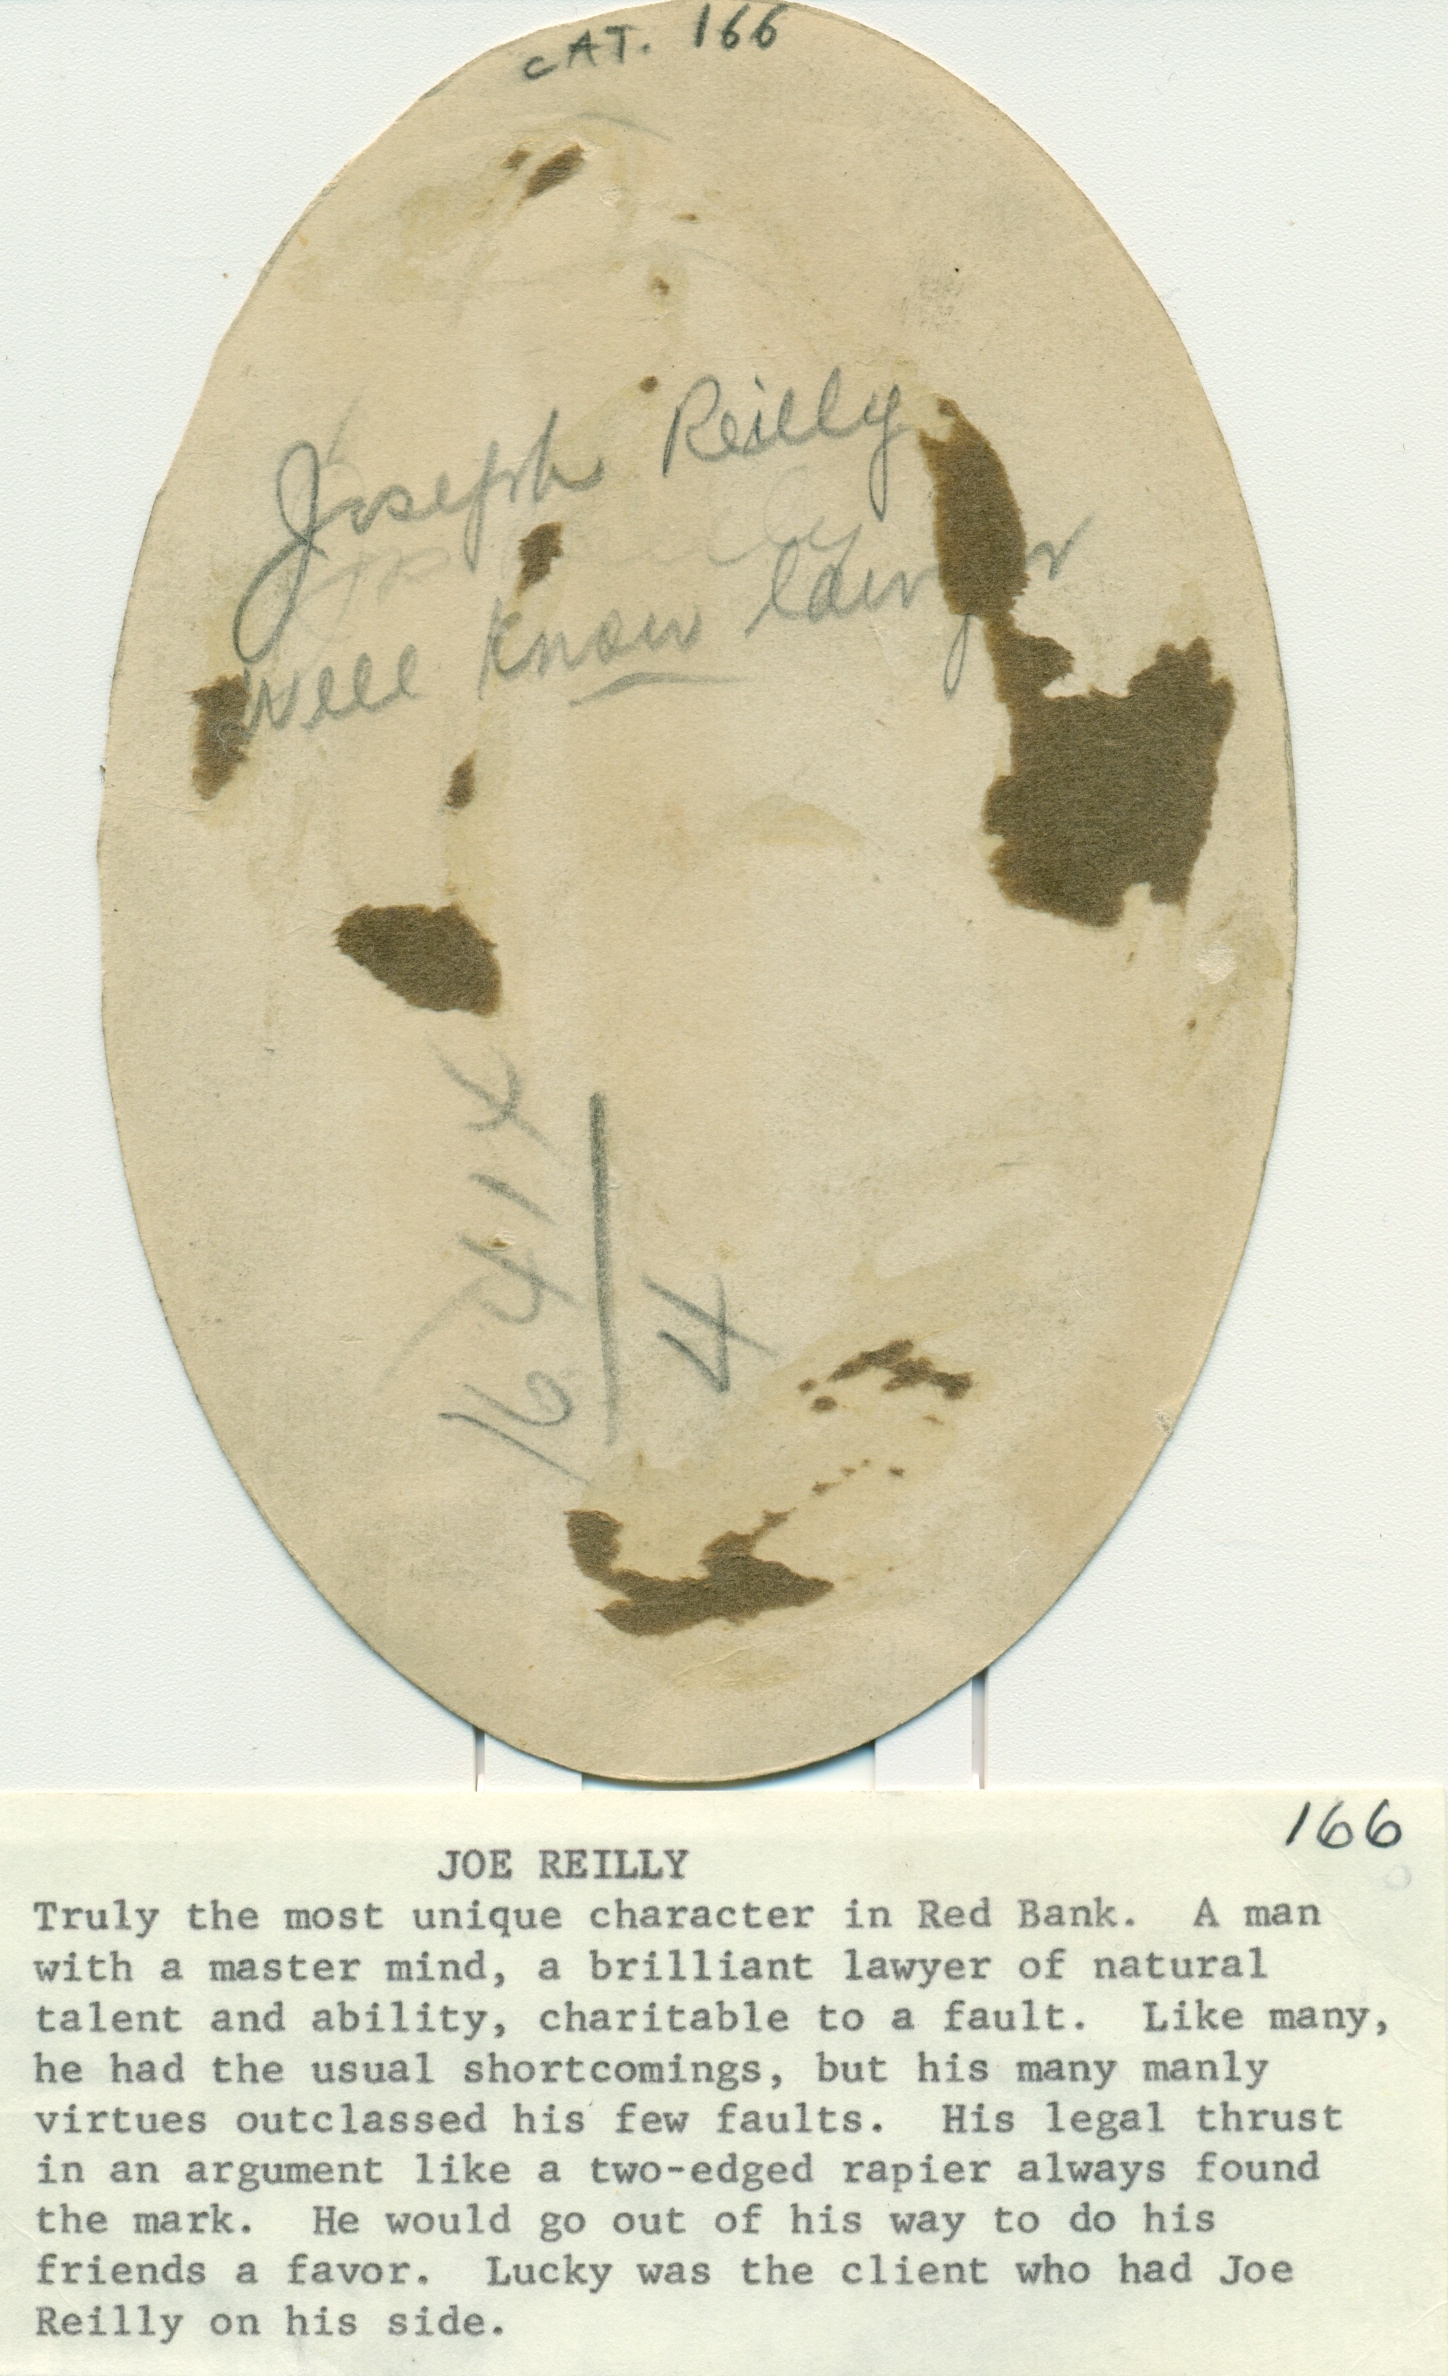 CAT. 166
Joseph Reilly
Well know lawyer
4
166
JOE REILLY
Truly the most unique character in Red Bank. A man
with a master mind, a brilliant lawyer of natural
talent and ability, charitable to a fault. Like many,
he had the usual shortcomings, but his many manly
virtues outclassed his few faults. His legal thrust
in an argument like a two-edged rapier always found
the mark. He would go out of his way to do his
friends a favor. Lucky was the client who had Joe
Reilly on his side.